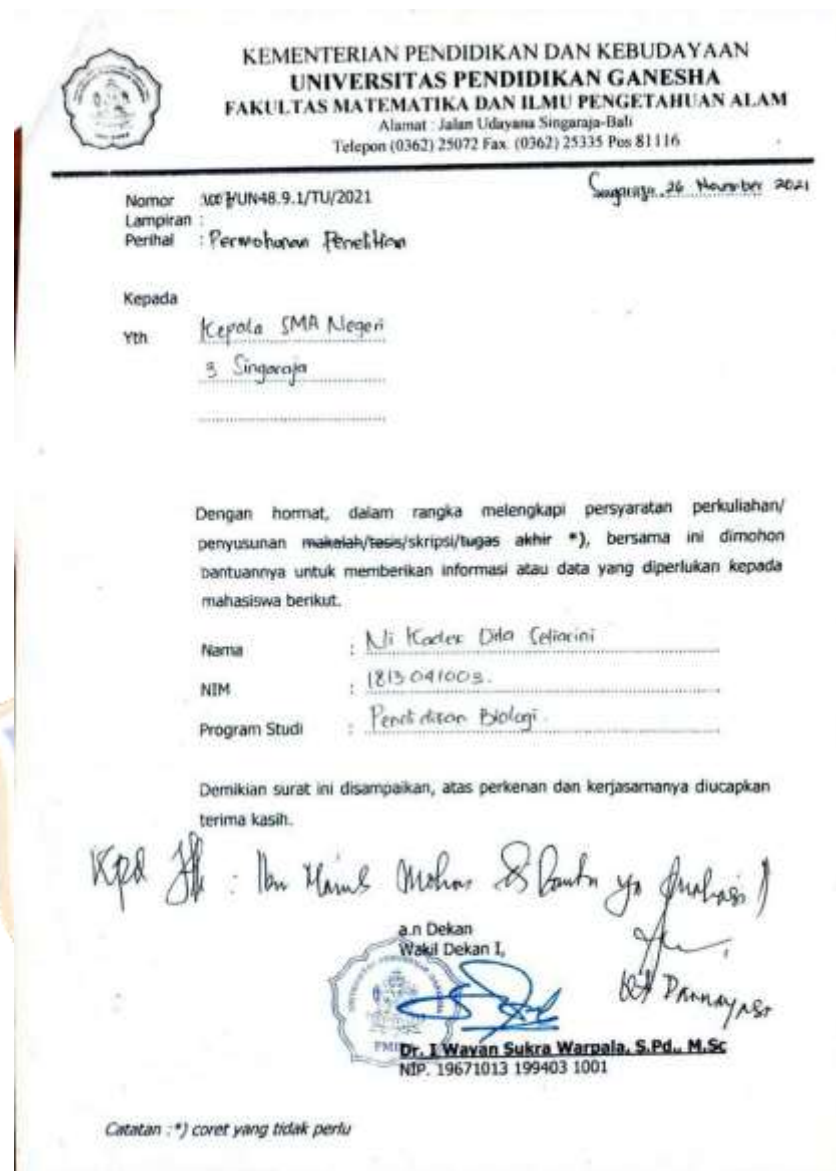 KEMENTERIAN PENDIDIKAN DAN KEBUDAYAAN
UNIVERSITAS PENDIDIKAN GANESHA
FAKULTAS MATEMATIKA DAN ILMU PENGETAHUAN ALAM
Alamat : Jalan Udayana Singaraja-Bali
Telepon (0362) 25072 Fax. (0362) 25335 Pos 81116
Singaraja, 26 November 2021
Nomor /UN48.9.1/TU/2021
Lampiran :
Perihal : Permohonan Penelitian
Kepada
Yth Kepala SMA Negeri
3 Singaraja
Dengan hormat, dalam rangka melengkapi persyaratan perkuliahan/
penyusunan makalah/tesis/skripsi/tugas akhir *), bersama ini dimohon
bantuannya untuk memberikan informasi atau data yang diperlukan kepada
mahasiswa berikut.
Nama : Ni Kadek Dita Setiarini
NIM : 1813041003.
Program Studi : Pendidikan Biologi.
Demikian surat ini disampaikan, atas perkenan dan kerjasamanya diucapkan
terima kasih.
Kpd : Ibu Mohon
a.n Dekan
Wakil Dekan I,
Dr. I Wayan Sukra Warpala, S.Pd., M.Sc
NIP. 19671013 199403 1001
Catatan : *) coret yang tidak perlu